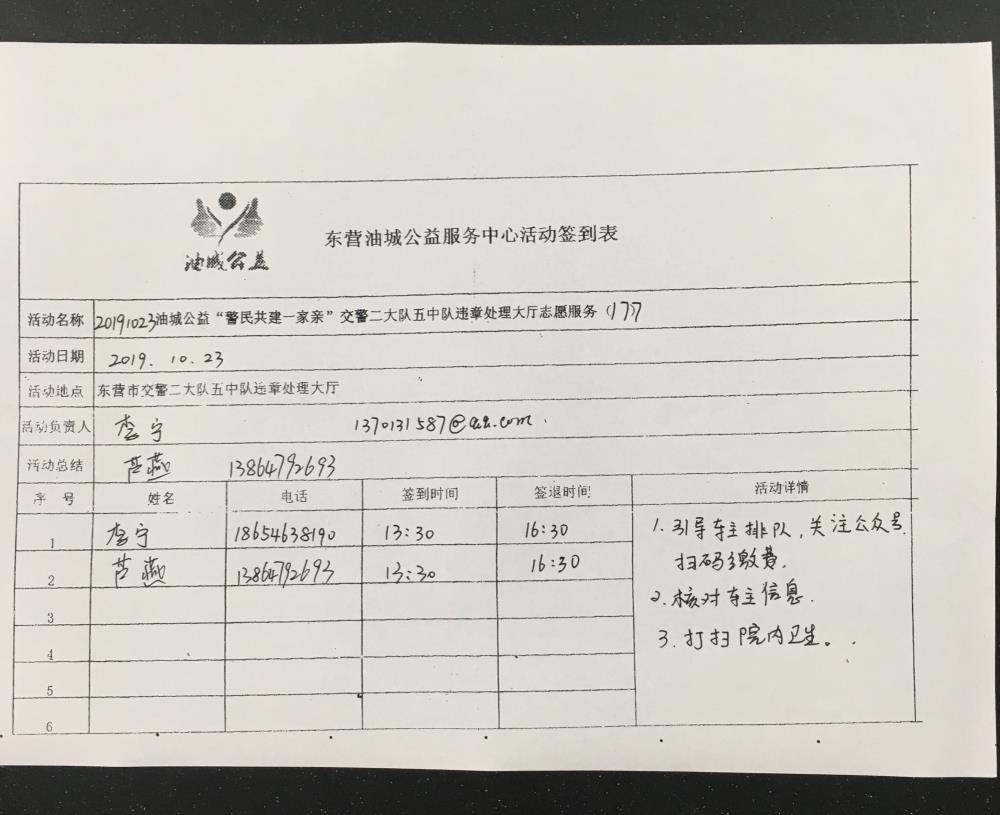 油城公益
东营油城公益服务中心活动签到表
活动名称 20191023油城公益“警民共建一家亲”交警二大队五中队违章处理大厅志愿服务(177)
活动日期 2019.10.23
活动地点 东营市交警二大队五中队违章处理大厅
活动负责人 李宁 1370131587@qq.com.
活动总结 芦燕 13864792693
序号 姓名 电话 签到时间 签退时间 活动详情
1 李宁 18654638190 13:30 16:30
2 芦燕 13864792693 13:30 16:30
3
4
5
6
1. 引导车主排队,关注公众号.
扫码缴费.
2. 核对车主信息.
3. 打扫院内卫生。